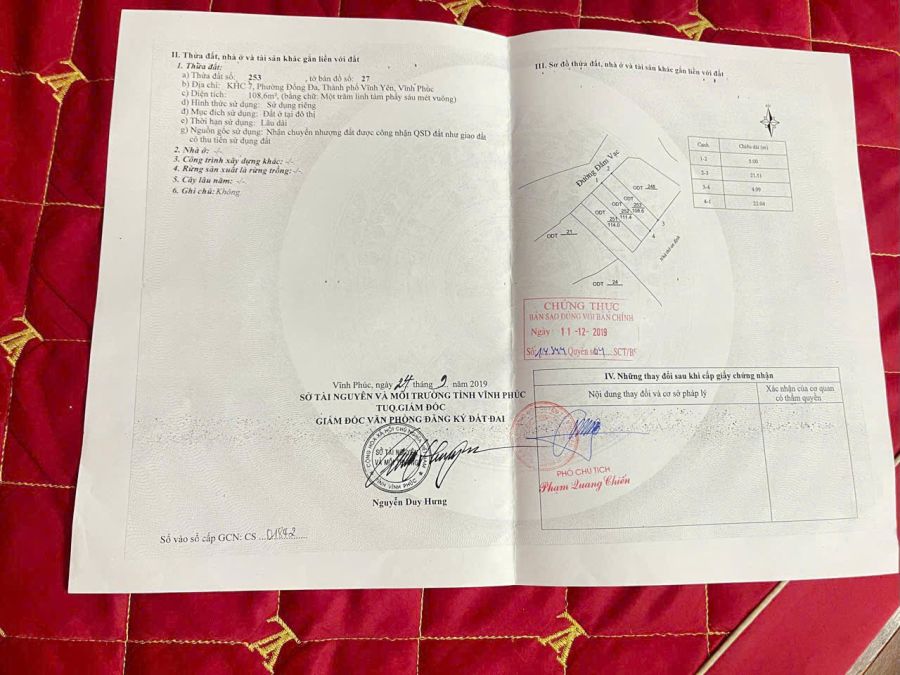 II. Thửa đất, nhà ở và tài sản khác gắn liền với đất
1. Thửa đất:
a) Thửa đất số: 253 , tờ bản đồ số: 27
b) Địa chỉ: KHC 7, Phường Đống Đa, Thành phố Vĩnh Yên, Vĩnh Phúc
c) Diện tích: 108,6m², (bằng chữ: Một trăm linh tám phẩy sáu mét vuông)
d) Hình thức sử dụng: Sử dụng riêng
đ) Mục đích sử dụng: Đất ở tại đô thị
e) Thời hạn sử dụng: Lâu dài
g) Nguồn gốc sử dụng: Nhận chuyển nhượng đất được công nhận QSD đất như giao đất
có thu tiền sử dụng đất
2. Nhà ở: -/-
3. Công trình xây dựng khác: -/-
4. Rừng sản xuất là rừng trồng: -/-
5. Cây lâu năm: -/-
6. Ghi chú: Không.
Vĩnh Phúc, ngày 24 tháng 9 năm 2019
SỞ TÀI NGUYÊN VÀ MÔI TRƯỜNG TỈNH VĨNH PHÚC
TUQ.GIÁM ĐỐC
GIÁM ĐỐC VĂN PHÒNG ĐĂNG KÝ ĐẤT ĐAI
SỞ TÀI NGUYÊN
VÀ MÔI TRƯỜNG
TỈNH VĨNH PHÚC
Nguyễn Duy Hưng
Số vào sổ cấp GCN: CS 01842
III. Sơ đồ thửa đất, nhà ở và tài sản khác gắn liền với đất
Cạnh Chiều dài (m)
1-2 5.00
2-3 21.51
3-4 4.99
4-1 22.04
Đường Đầm Vạc
1
2
ODT 248
ODT 253 108.6
ODT 252 111.4
ODT 251 114.0
3
4
ODT 21
ODT 24
CHỨNG THỰC
BẢN SAO ĐÚNG VỚI BẢN CHÍNH
Ngày 11-12-2019
Số: Quyển số SCT/BS
IV. Những thay đổi sau khi cấp giấy chứng nhận
Nội dung thay đổi và cơ sở pháp lý
Xác nhận của cơ quan
có thẩm quyền
PHÓ CHỦ TỊCH
Phạm Quang Chiến